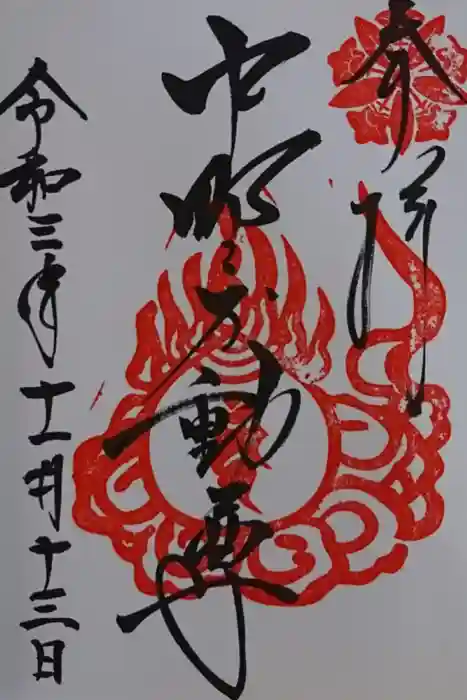 奉拝
中不動尊
令和三年十一月十三日